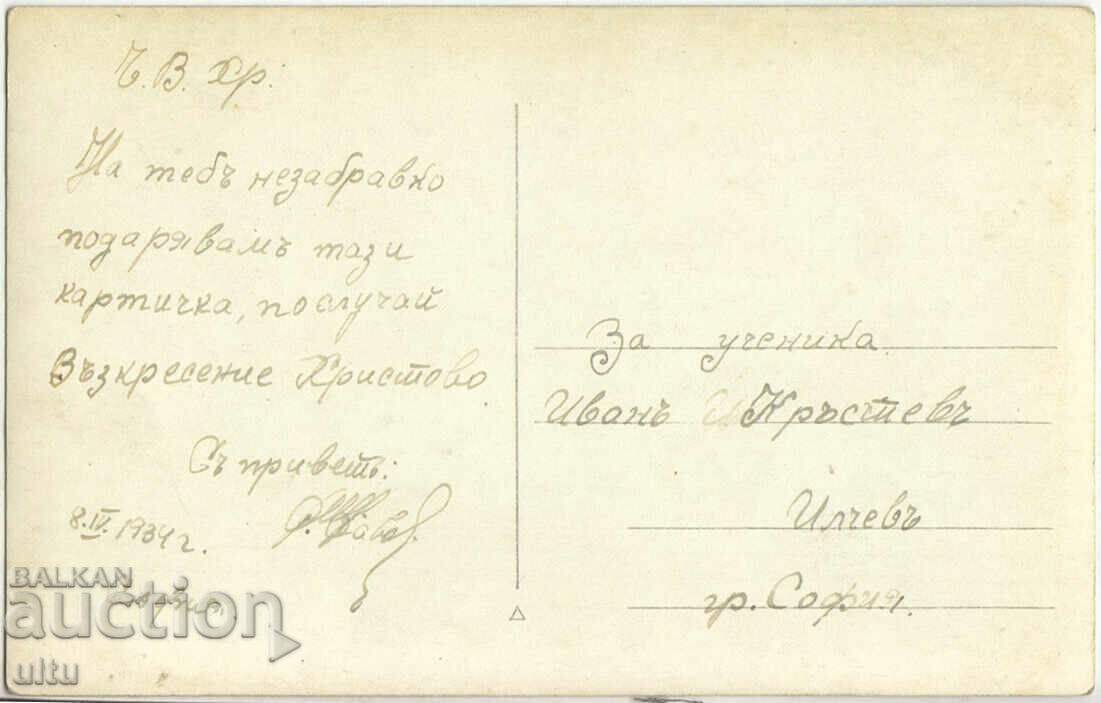 Ч. В. Хр.
На тебъ незабравко
подарявамъ тази
картичка, по случай
Възкресение Христово
Съ приветъ:
8.IV.1934 г.
За ученика
Иванъ Кръстевъ
Илчевъ
гр. София.
BALKAN
auction
ultu